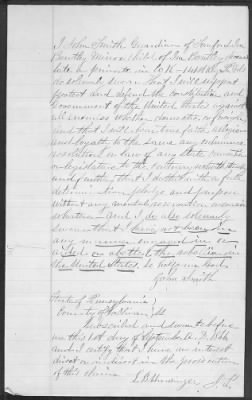 I John Smith Guardian of Sanford Ira
Bentley Minor Child of Ira Bentley
late a private in Co K
do solemnly swear that I will support
protect and defend the constitution and
Government of the United States against
all enemies whether domestic or foreign
and that I will bear true faith allegiance
and loyalty to the same any ordinance
resolution or law of any state convention
or legislature to the contrary notwithstand-
ing and further that I do this with a full
determination pledge and purpose
without any mental reservation or evasion
whatever and I do also solemnly
swear that I have not been in
any manner engaged in or
aided or abetted the rebellion in
the United States. So help me God
John Smith
State of Pennsylvania
County of Sullivan
Subscribed and sworn to before
me this 1st day of September A.D. 1866
and I certify that I have no interest
direct or indirect in the prosecution
of this claim